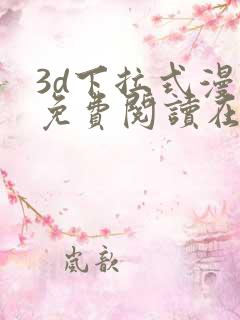 3d下拉式漫
免費閱讀在
嵐歆